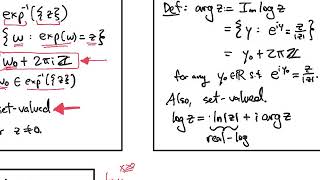 exp⁻¹({z})
{w : exp(w) = z}
w₀ + 2πiℤ
w₀ ∈ exp⁻¹({z})
set-valued
z ≠ 0.
Def: arg z := Im log z
= {y : e^{iy} = z/|z|}
= y₀ + 2πℤ
for any y₀ ∈ ℝ s.t. e^{iy₀} = z/|z|
Also, set-valued
log z = ln|z| + i arg z
real-log